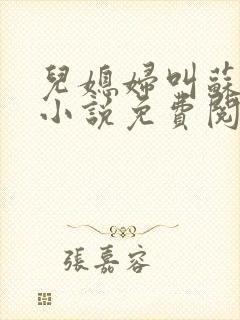 兒媳婦叫蘇
小說免費閱
張嘉容